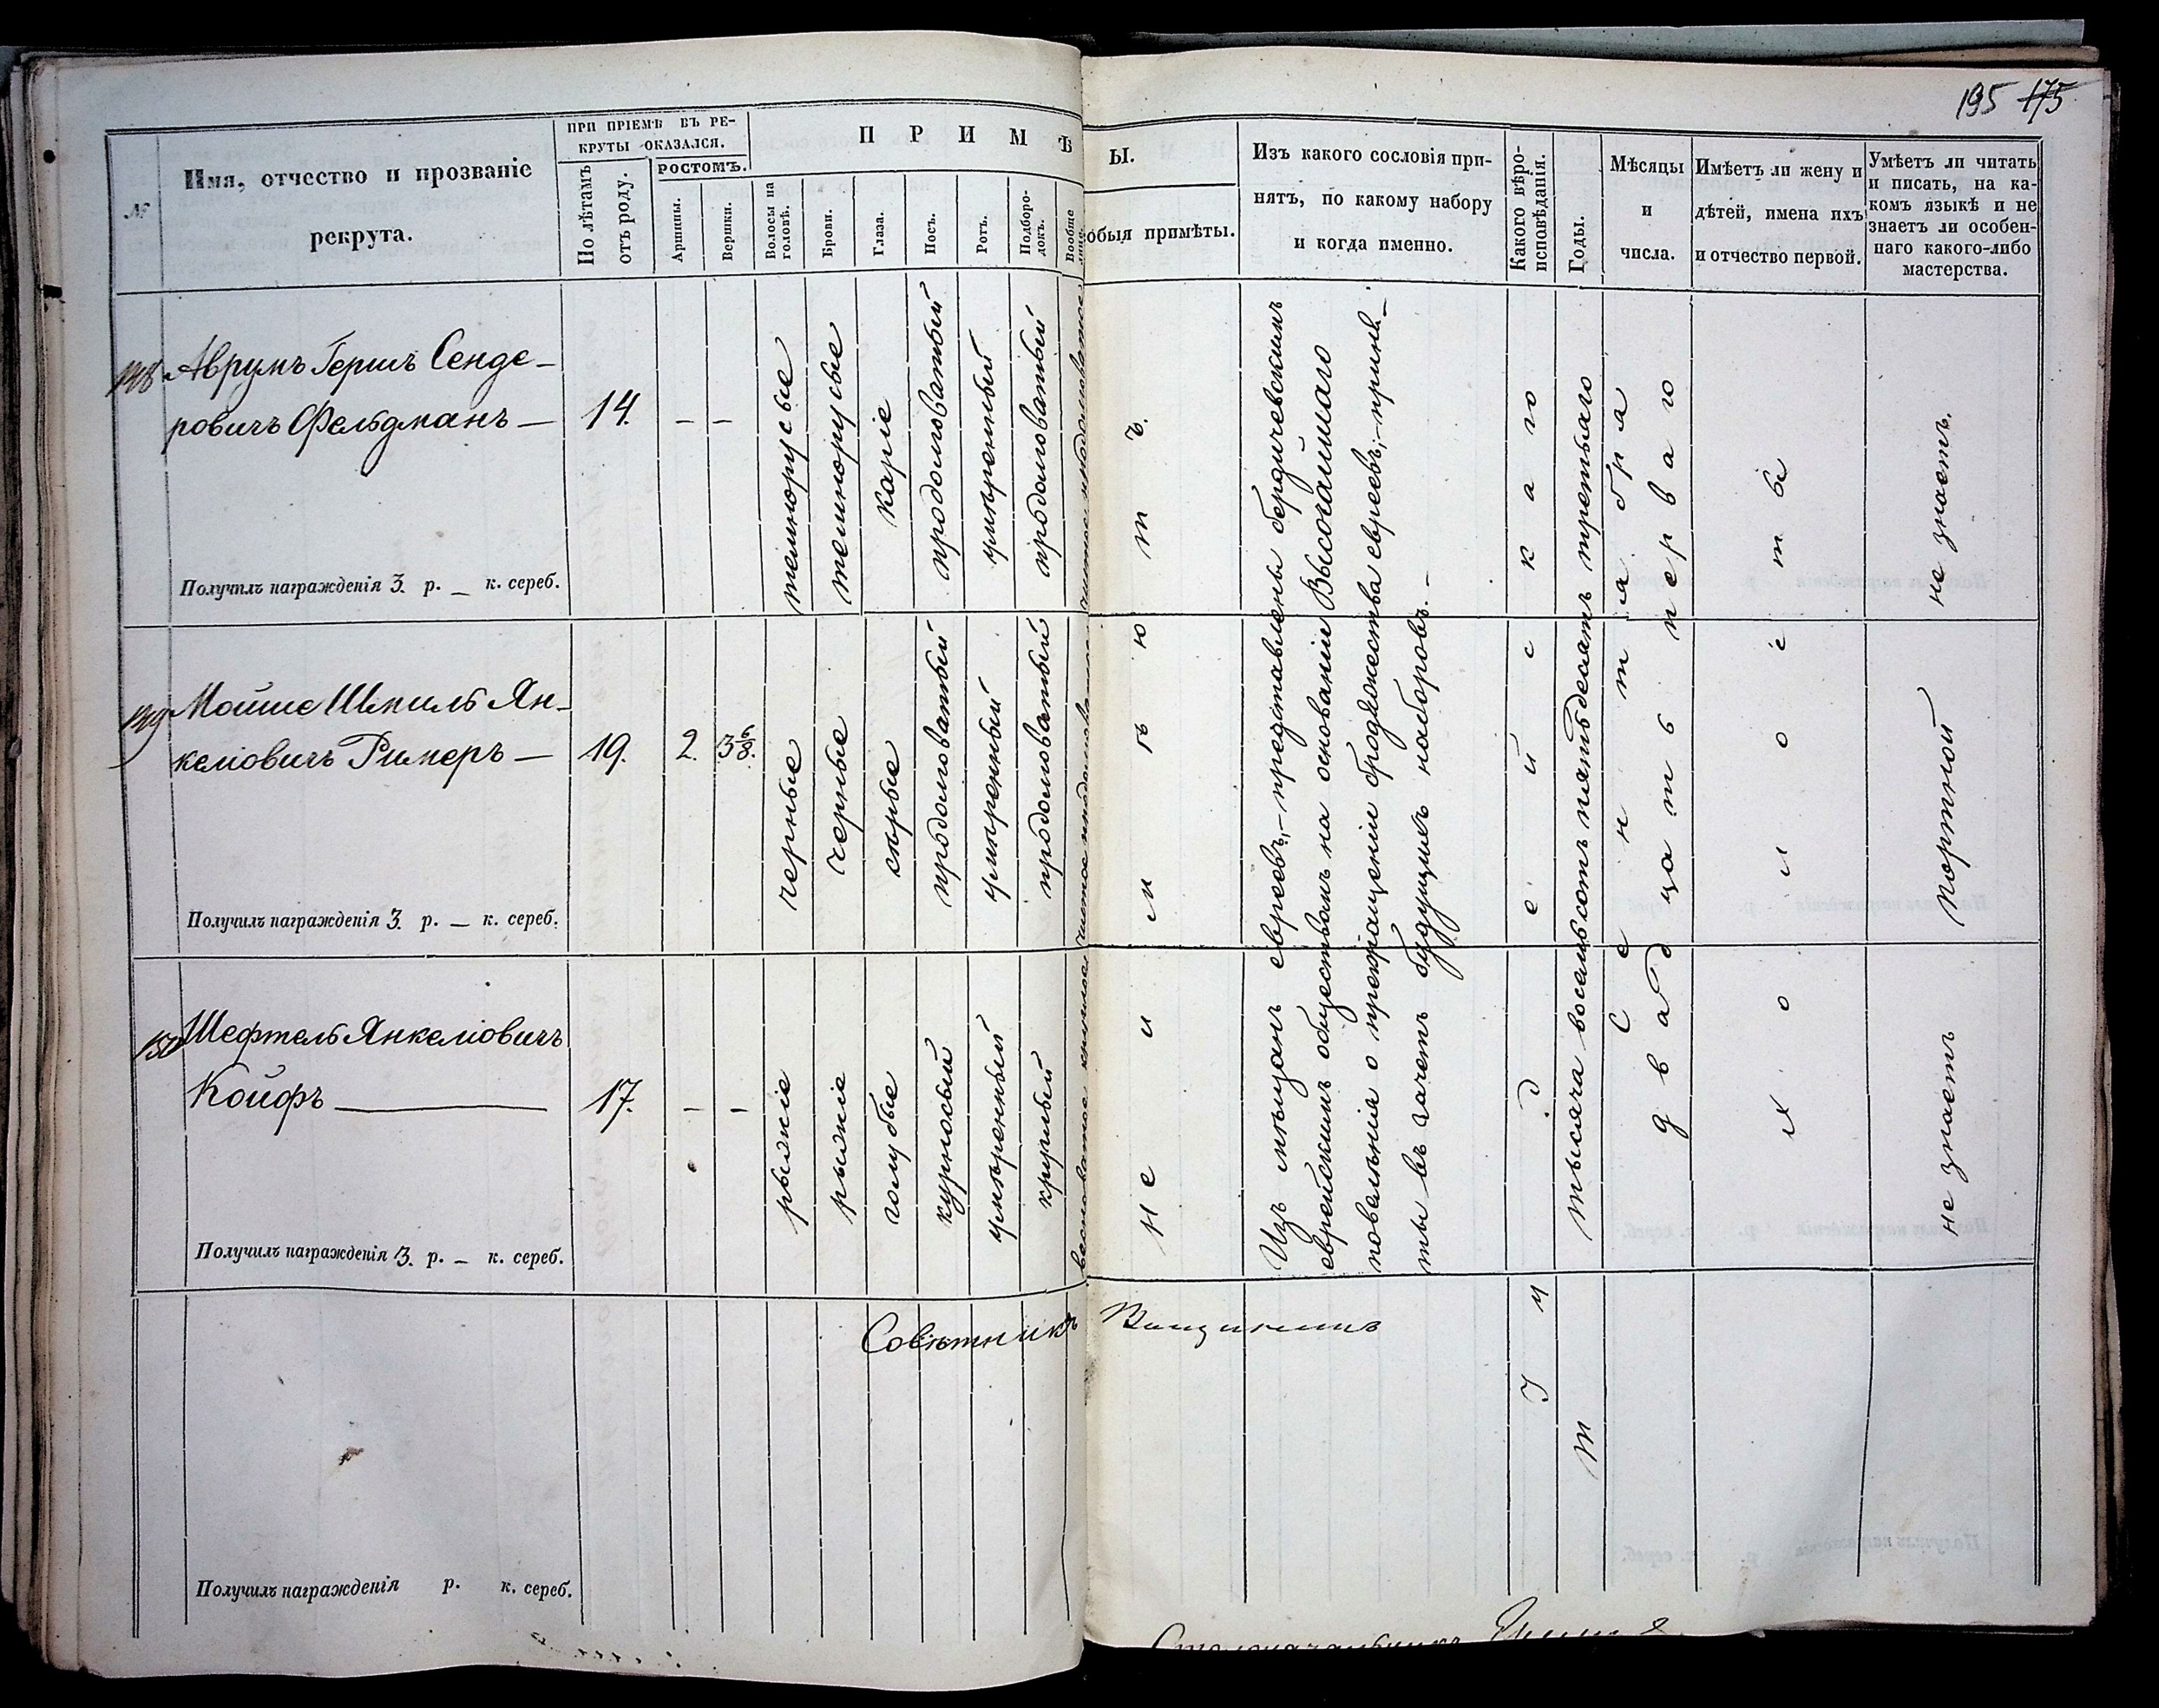 195 175
№
Имя, отчество и прозваніе
рекрута.
ПРИ ПРІЕМѢ ВЪ РЕ-
КРУТЫ ОКАЗАЛСЯ.
По лѣтамъ
отъ роду.
РОСТОМЪ.
Аршины.
Вершки.
ПРИМѢ
Ы.
Волосы на
головѣ.
Брови.
Глаза.
Носъ.
Ротъ.
Подборо-
докъ.
Вообще
лице.
обыя примѣты.
Изъ какого сословія при-
нятъ, по какому набору
и когда именно.
Какого вѣро-
исповѣданія.
Годы.
Мѣсяцы
и
числа.
Имѣетъ ли жену и
дѣтей, имена ихъ
и отчество первой.
Умѣетъ ли читать
и писать, на ка-
комъ языкѣ и не
знаетъ ли особен-
наго какого-либо
мастерства.
148 Аврумъ Гершъ Сенде-
ровичъ Фельдманъ —
14.
— —
темнорусые
темнорусые
каріе
продолговатый
умѣренный
продолговатый
чистое продолговатое
не знаетъ.
Получилъ награжденія 3. р. — к. сереб.
149 Мойше Шмиль Ян-
келіовичъ Римеръ —
19.
2.
3 6/8.
черные
черные
сѣрые
продолговатый
умѣренный
продолговатый
чистое продолговатое
портной
Получилъ награжденія 3. р. — к. сереб.
150 Шефтель Янкеліовичъ
Койфъ
17.
— —
рыжіе
рыжіе
голубые
курносый
умѣренный
круглый
весноватое круглое
не знаетъ
Получилъ награжденія 3. р. — к. сереб.
Не имѣютъ.
Изъ мѣщанъ евреевъ,— представлены бердичевскимъ
еврейскимъ обществомъ на основаніи Высочайшаго
повелѣнія о прекращеніи бродяжества евреевъ,— приня-
ты въ зачетъ будущихъ наборовъ.—
Іудейскаго
Тысяча восемьсотъ пятьдесятъ третьяго
Сентября
двадцать перваго
Холосты
Совѣтникъ
Получилъ награжденія р. к. сереб.
Столоначальникъ